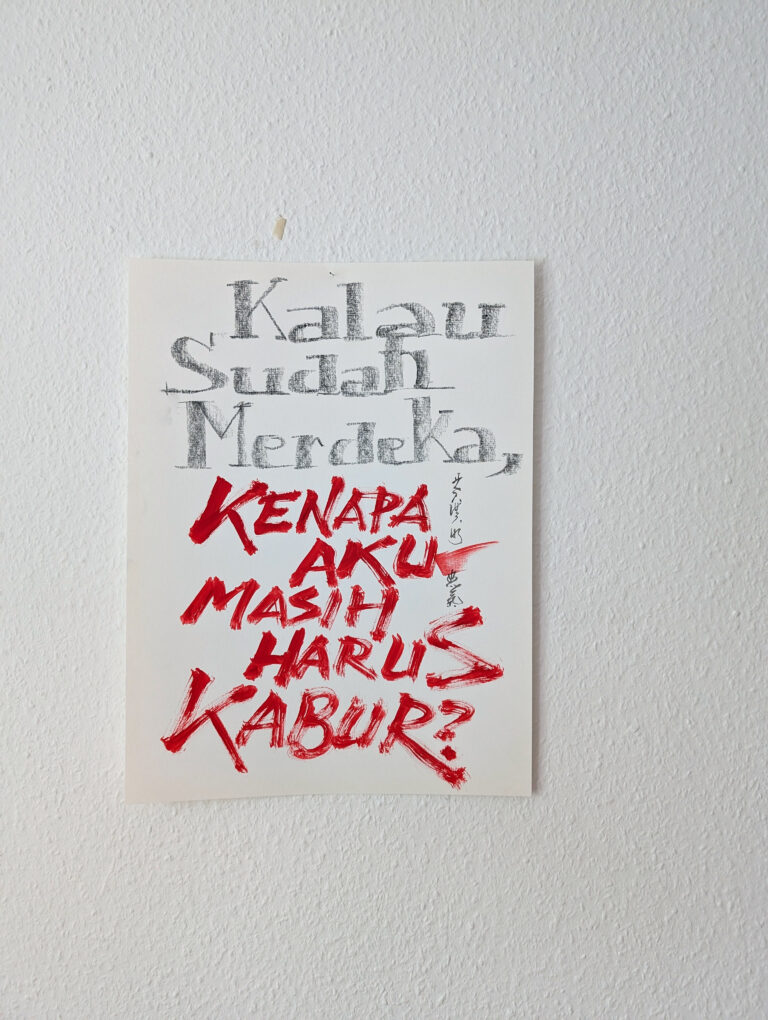 Kalau
Sudah
Merdeka,
KENAPA
AKU
MASIH
HARUS
KABUR?